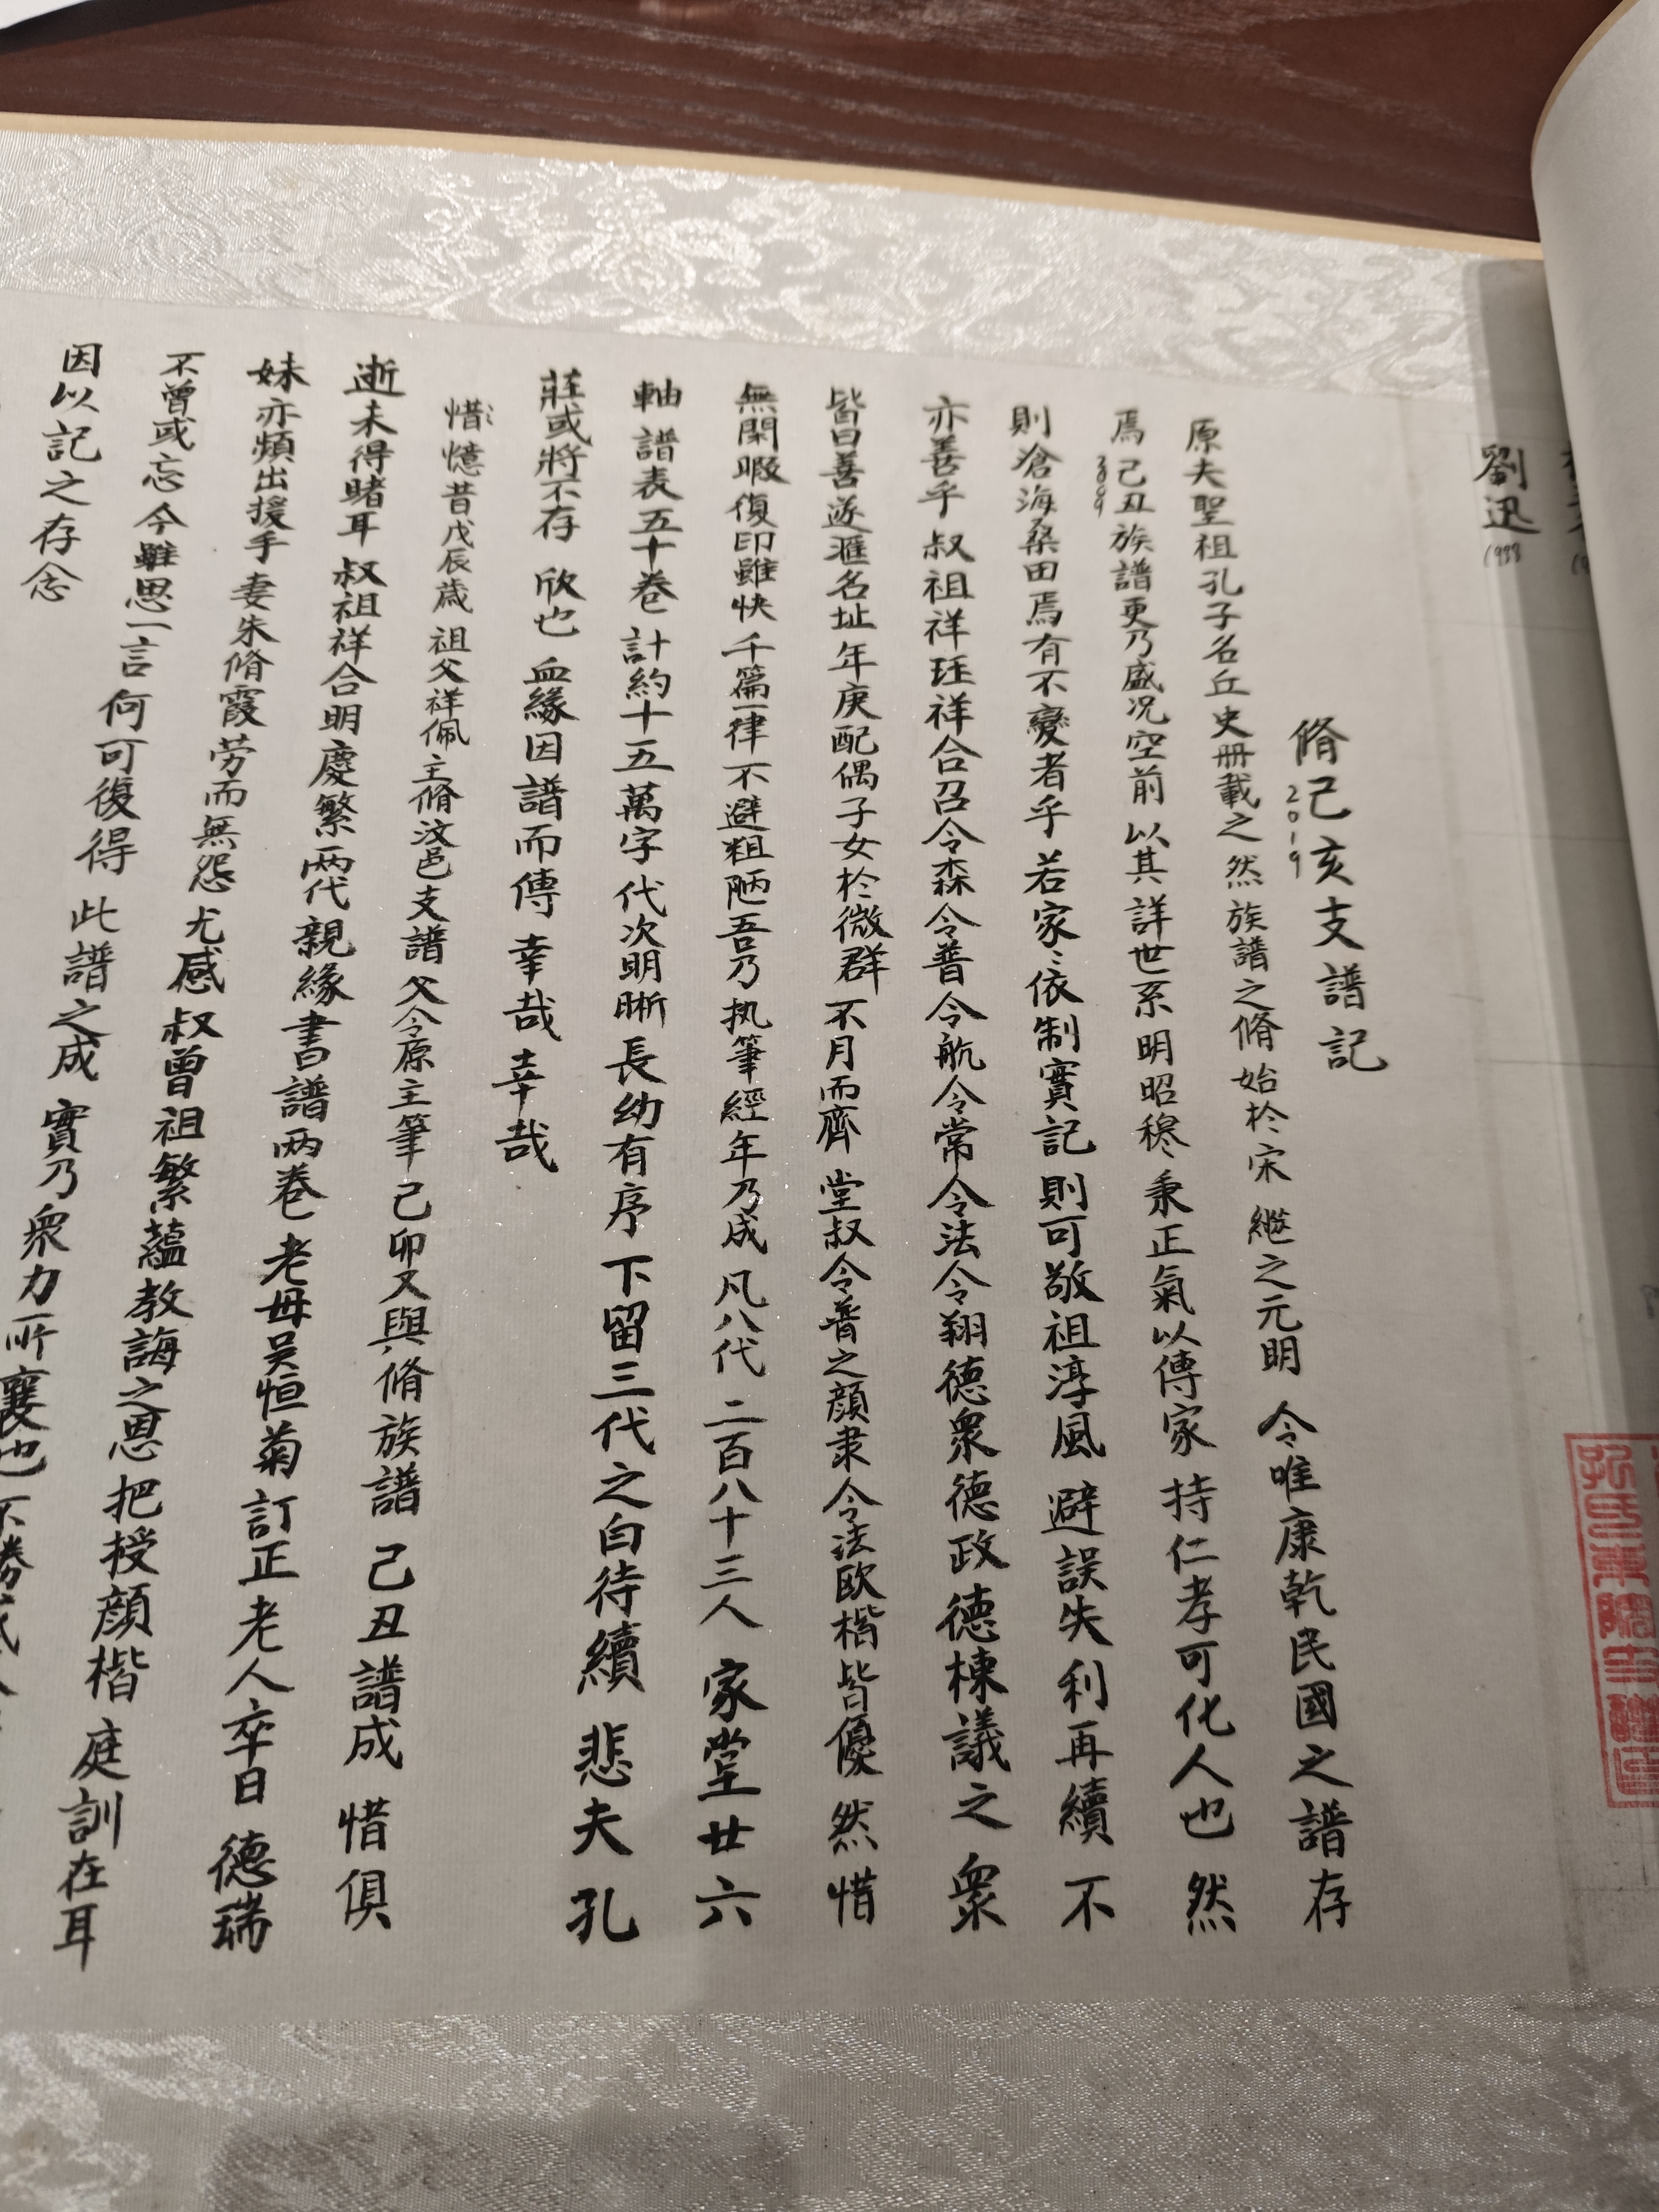 劉迅
1988
脩己亥支譜記
2019
原夫聖祖孔子名丘史冊載之然族譜之脩始於宋繼之元明令唯康乾民國之譜存
焉己丑族譜更乃盛況空前以其詳世系明昭穆秉正氣以傳家持仁孝可化人也然
2009
則滄海桑田焉有不變者乎若家〻依制實記則可敬祖淳風避誤失利再續不
亦善乎叔祖祥珏祥合召令森令普令航令常令法令翔德衆德政德棟議之衆
皆曰善遂匯名址年庚配偶子女於微群不月而齊堂叔令普之顔隶令法歐楷皆優然惜
無閑暇復印雖快千篇一律不避粗陋吾乃执筆經年乃成凡八代二百八十三人家堂廿六
軸譜表五十卷計約十五萬字代次明晰長幼有序下留三代之白待續悲夫孔
莊或將不存欣也血緣因譜而傳幸哉幸哉
惜〻憶昔戊辰歲祖父祥佩主脩汶邑支譜父令原主筆己卯又與脩族譜己丑譜成惜俱
逝未得睹耳叔祖祥合明慶繁两代親緣書譜两卷老母吴恒菊訂正老人卒日德瑞
妹亦頻出援手妻朱脩霞劳而無怨尤感叔曾祖繁蘊教誨之恩把授顔楷庭訓在耳
不曾或忘今雖思一言何可復得此譜之成實乃衆力所襄也不勝
因以記之存念